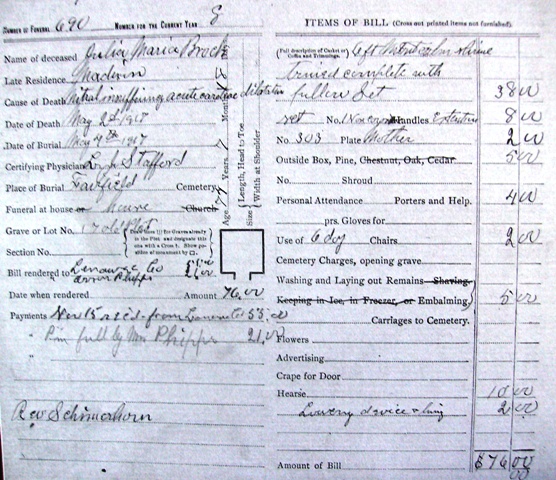 NUMBER OF FUNERAL 690 NUMBER FOR THE CURRENT YEAR 8
Name of deceased Julia Maria Brock
Late Residence Madison
Cause of Death Mitral insufficiency acute cardiac dilitation
Date of Death May 2nd 1917
Date of Burial May 4th 1917
Certifying Physician Stafford
Place of Burial Fairfield Cemetery
Funeral at house or House Church
Grave or Lot No. old Plot
Section No.
Bill rendered to Lenawee Co
Phipps
Date when rendered Amount 76.00
Payments Nov 15 recd from Lenawee Co 55.00
" Pin full by Mrs Phipps 21.00
"
"
Rev Schimerhorn
Age 77 Years 7 Months 18 Days
Size { Length, Head to Toe
Width at Shoulder
ITEMS OF BILL (Cross out printed items not furnished).
(Full description of Casket or Coffin and Trimmings.) 6ft
lined complete with
fuller set 38 00
set No. Handles 8 00
No. 303 Plate Mother 2 00
Outside Box, Pine, Chestnut, Oak, Cedar 5 00
No. Shroud
Personal Attendance Porters and Help. 4 00
prs. Gloves for
Use of 6 doz Chairs 2 00
Cemetery Charges, opening grave
Washing and Laying out Remains Shaving
Keeping in Ice, in Freezer, or Embalming 5 00
Carriages to Cemetery.
Flowers
Advertising
Crape for Door
Hearse 10 00
Lowering device & lining 2 00
Amount of Bill $76 00
00